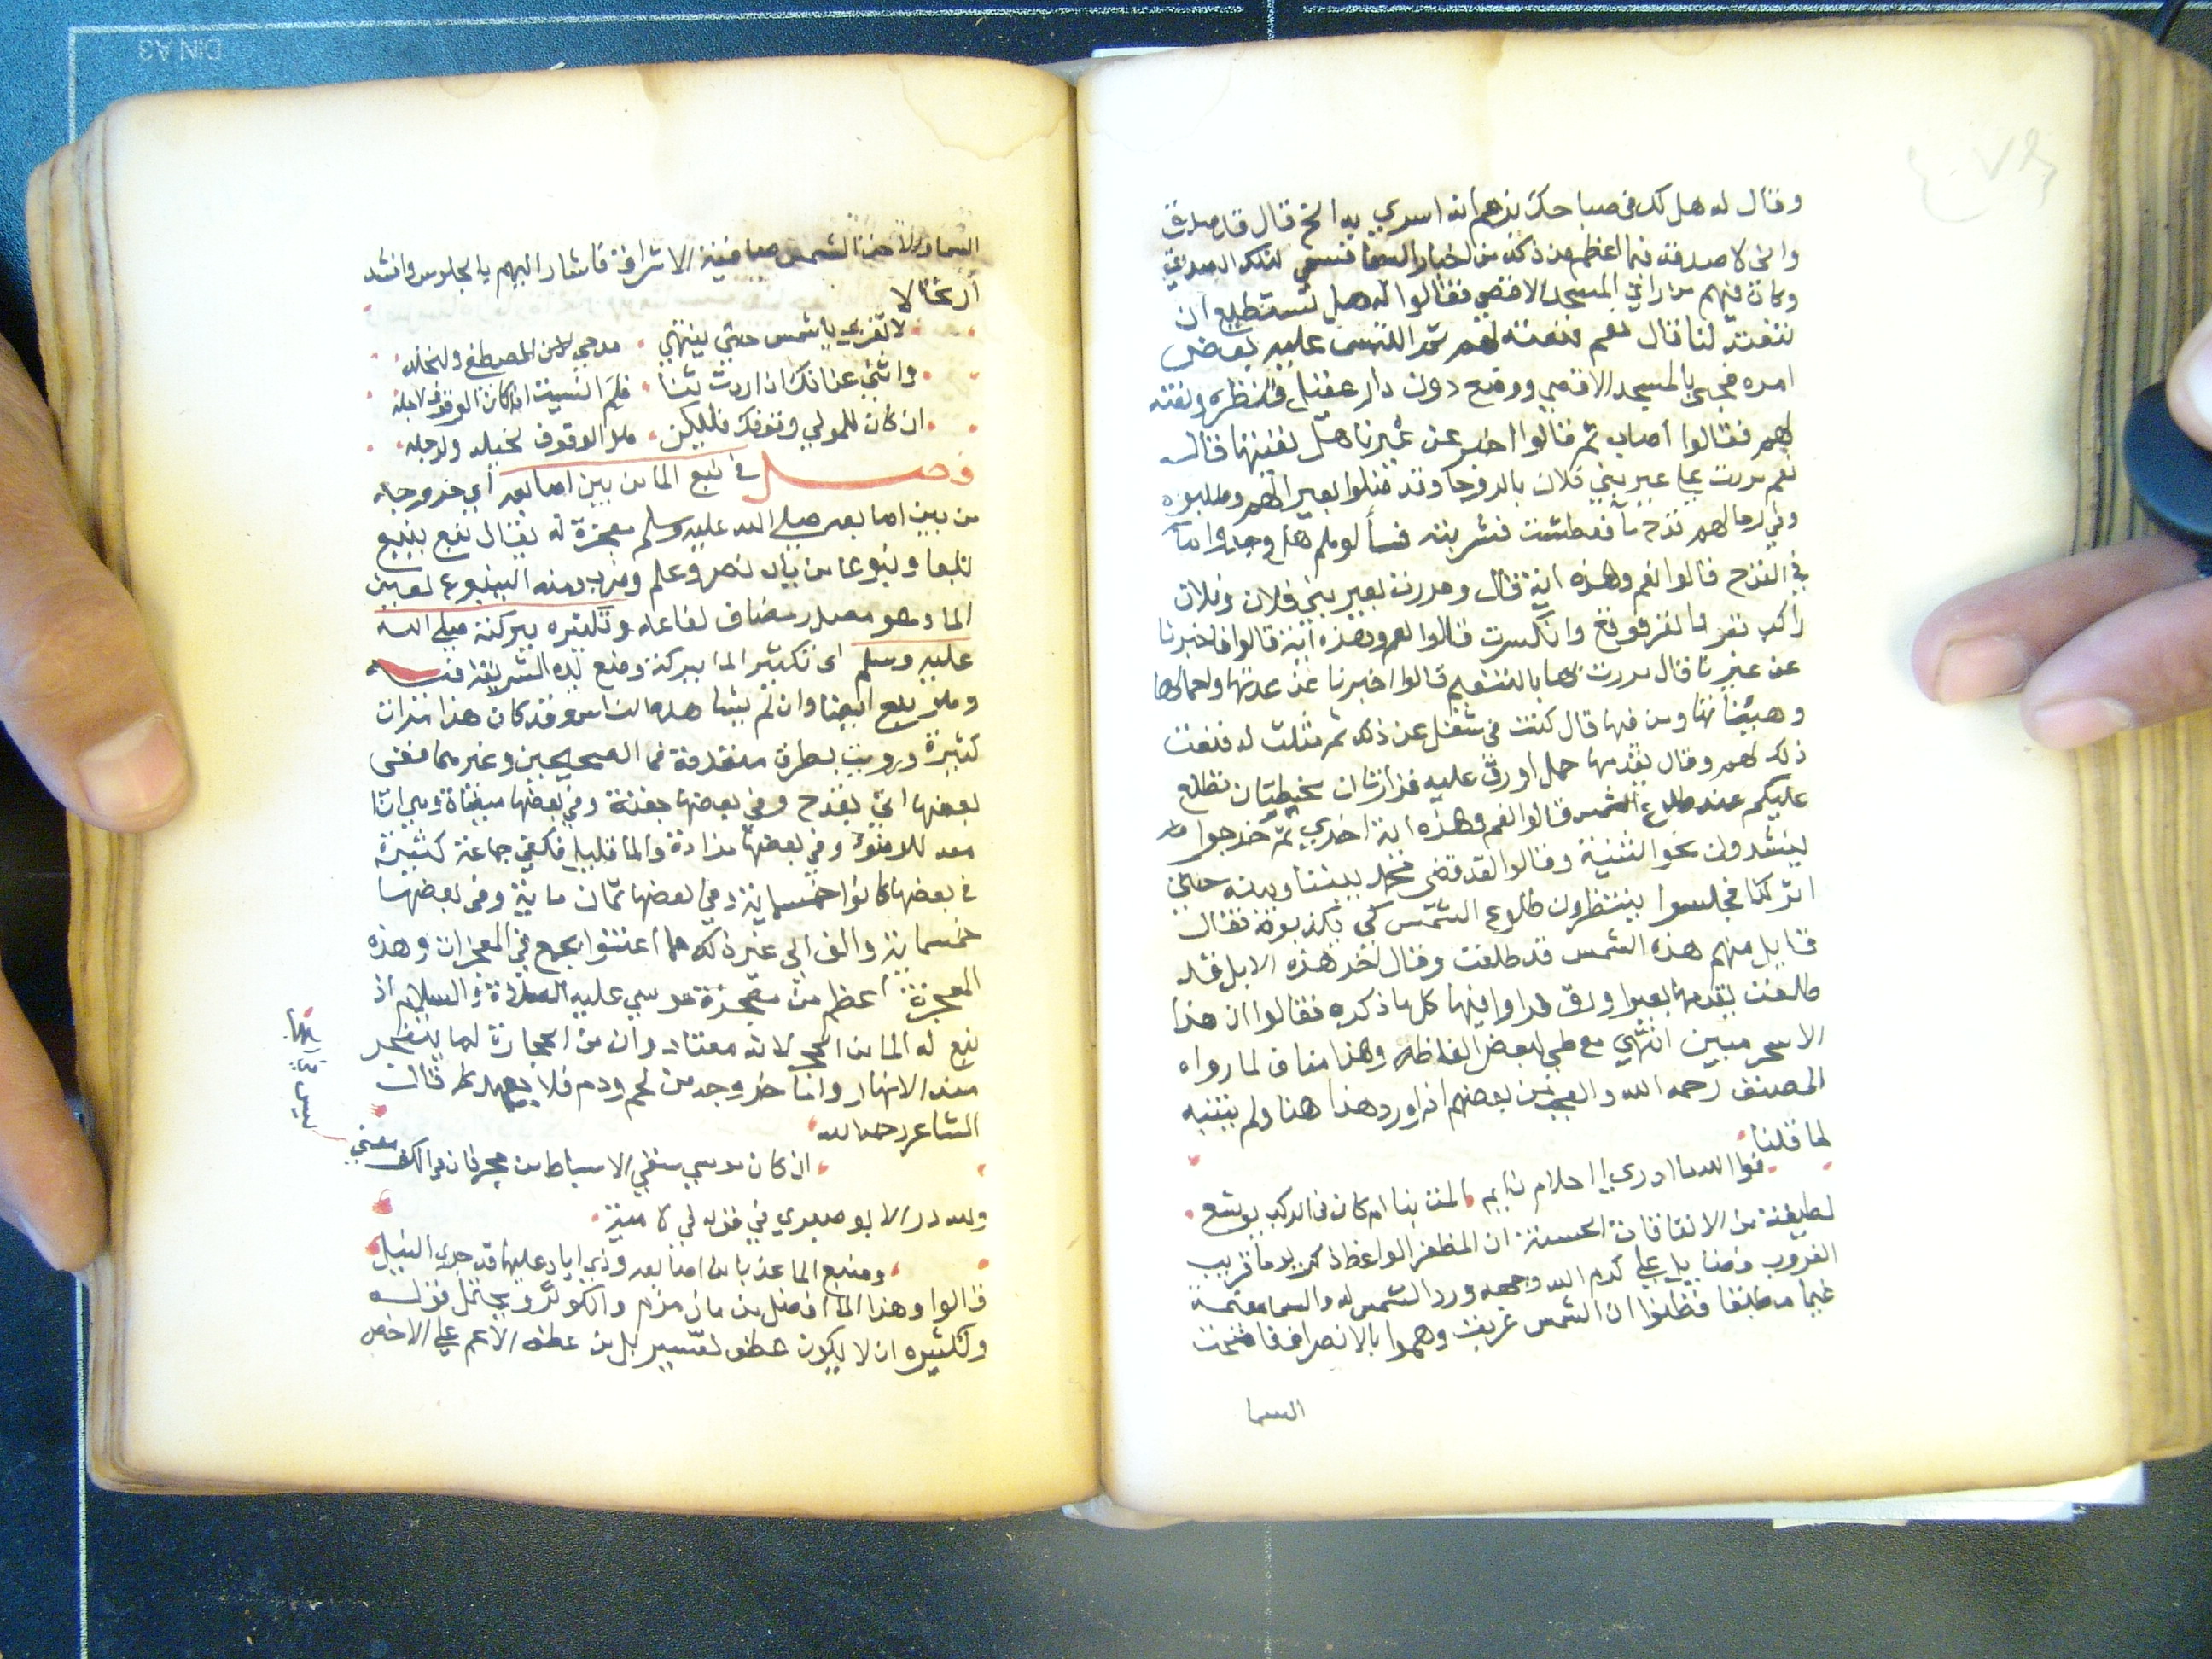 وقال له هل لك في صاحبك يزعم انه اسري به الخ قال قد صدق
واني لاصدقه فيما اعظم من ذلك من اخبار السما فسمي لذلك الصديق
وكان فيهم من راي المسجد الاقصي فقالوا له هل تستطيع ان
تنعته لنا قال نعم فنعته لهم ثم التبس عليه بعض
امره فجيئ بالمسجد الاقصي ووضع دون دار عقيل فنظره ونعته
لهم فقالوا اصاب ثم قالوا اخبر عن عيرنا هل لقيتها قال
نعم مررت علي عير بني فلان بالروحا وقد ضلوا بعيرا لهم وطلبوه
وفي رحالهم قدح مآ فعطشت فشربته فسألوهم هل وجدوا المآ
في القدح قالوا نعم وهذه آية قال ومررت بعير بني فلان وفلان
راكب فانكسرت قالوا نعم وهذه آية قالوا فاخبرنا
عن عيرنا قال مررت بها بالتنعيم قالوا اخبرنا عن عدتها واحمالها
وهيئاتها ومن فيها قال كنت في شغل عن ذلك ثم مثلت له فنعت
ذلك لهم وقال يقدمها جمل اورق عليه غرارتان مخيطتان تطلع
عليكم عند طلوع الشمس قالوا نعم وهذه آية اخري ثم خرجوا
يشتدون نحو الثنية وقالوا لقد قضي محمد بيننا وبينه حتي
اتوا كدا فجلسوا ينتظرون طلوع الشمس كي يكذبونه فقال
قايل منهم هذه الشمس قد طلعت وقال اخر هذه الابل قد
طلعت يقدمها بعير اورق فراوا فيها كل ما ذكره فقالوا ان هذا
الا سحر مبين انتهي مع طي لبعض الفاظه وهذا مناف لما رواه
المصنف رحمه الله والعجب من بعضهم انه اورد هذا هنا ولم يتنبه
لما قلنا
فوالله ما ادري أاحلام نايم المت بنا ام كان في الركب يوشع
لطيفة من الاتفاقات الحسنة ان المظفر الواعظ ذكر يوما قريب
الغروب فضايل علي كرم الله وجهه ورد الشمس له والسما مغيمة
غيما مطبقا فظنوا ان الشمس غربت وهموا بالانصراف فاصحت
السما
السما ولاحت الشمس صافية الاشراق فاشار اليهم بالجلوس وانشد
ارتجالا
لا تغربي يا شمس حتي ينتهي مدحي لال المصطفي ولنجله
واثني عنانك ان اردت ثنا انسيت اذ كان الوقوف لاجله
ان كان للمولي وقوفك فليكن هذا الوقوف لخيله ولرجله
فصل في نبع الما من بين اصابعه اي خروجه
من بين اصابعه صلي الله عليه وسلم معجزة له يقال نبع ينبع
نبعا ونبوعا من باب نصر وعلم وضرب ومنه الينبوع لعين
الما وهو مصدر مضاف لفاعله وتكثيره ببركته صلي الله
عليه وسلم اي تكثير الما ببركة وضع يده الشريفة فيه
وان لم ينبع ايضا وان لم يشاهده الناس وقد كان هذا مرات
كثيرة ورويت بطرق متعددة في الصحيحين وغيرهما ففي
بعضها اتي بقدح وفي بعضها جفنة وفي بعضها ميضاة وميراثا
معد للوضوء وفي بعضها مزادة والما قليل فكفي جماعة كثيرة
في بعضها كانوا خمسماية وفي بعضها ثمان ماية وفي بعضها
خمسماية والف الي غير ذلك مما اعتنوا بجمع في المعجزات وهذه
المعجزة اعظم من معجزة موسي عليه الصلاة والسلام اذ
نبع له الما من الحجر لانه معتاد وان من الحجارة لما يتفجر
منه الانهار واما خروجه من لحم ودم فلا يعهد كما قال
الشاعر رحمه الله
ان كان موسي سقي الاسباط من حجر فان في الكف معني
ليس في الحجر
ولله در الابوصيري في قوله في لاميته
ومنبع الما عذبا من اصابعه وذي اياد عليها قد جري النيل
قالوا وهذا الما افضل من ماء زمزم والكوثر ويحتمل قوله
وتكثيره ان لا يكون عطف تفسير بل من عطف الاعم علي الاخص